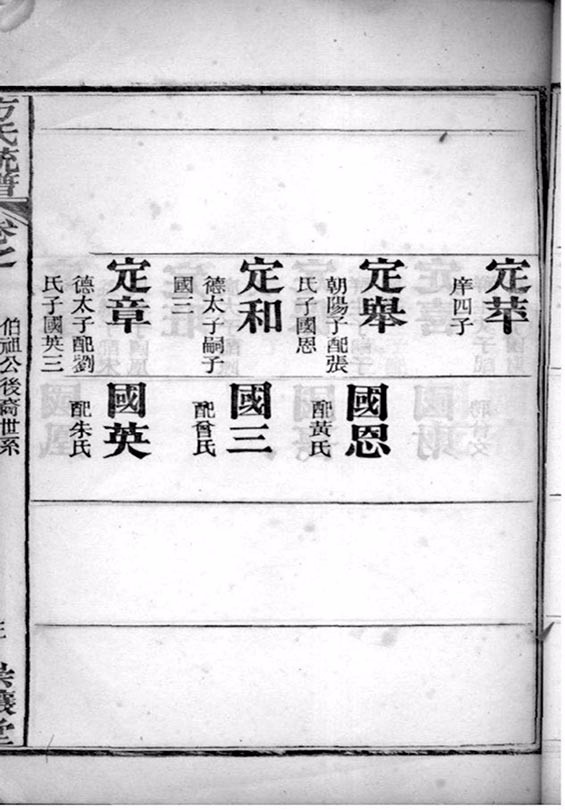 定苹
庠四子
定舉
朝陽子配張
氏子國恩
定和
德太子嗣子
國三
定章
德太子配劉
氏子國英三
國恩
配黃氏
國三
配曾氏
國英
配朱氏
方氏統譜
伯祖公後裔世系